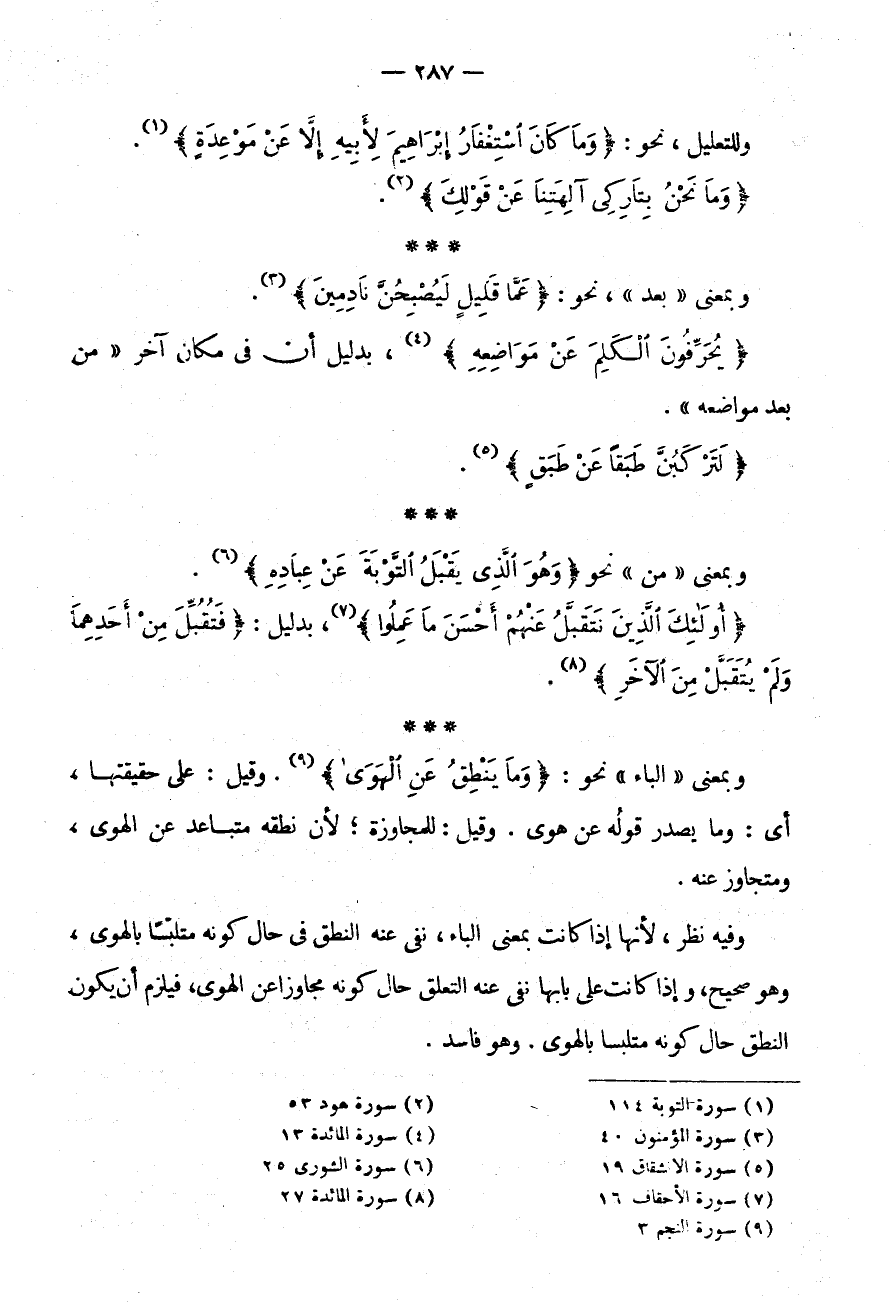 — ٢٨٧ —
وللتعليل ، نحو : ﴿ وَمَا كَانَ ٱسْتِغْفَارُ إِبْرَاهِيمَ لِأَبِيهِ إِلَّا عَنْ مَوْعِدَةٍ ﴾ (١) .
﴿ وَمَا نَحْنُ بِتَارِكِى آلِهَتِنَا عَنْ قَوْلِكَ ﴾ (٢) .
* * *
وبمعنى « بعد » ، نحو : ﴿ عَمَّا قَلِيلٍ لَيُصْبِحُنَّ نَادِمِينَ ﴾ (٣) .
﴿ يُحَرِّفُونَ ٱلْكَلِمَ عَنْ مَوَاضِعِهِ ﴾ (٤) ، بدليل أن فى مكان آخر « من
بعد مواضعه » .
﴿ لَتَرْكَبُنَّ طَبَقًا عَنْ طَبَقٍ ﴾ (٥) .
* * *
وبمعنى « من » نحو ﴿ وَهُوَ ٱلَّذِى يَقْبَلُ ٱلتَّوْبَةَ عَنْ عِبَادِهِ ﴾ (٦) .
﴿ أُولَٰئِكَ ٱلَّذِينَ نَتَقَبَّلُ عَنْهُمْ أَحْسَنَ مَا عَمِلُوا ﴾ (٧) ، بدليل : ﴿ فَتُقُبِّلَ مِنْ أَحَدِهِمَا
وَلَمْ يُتَقَبَّلْ مِنَ ٱلْآخَرِ ﴾ (٨) .
* * *
وبمعنى « الباء » نحو : ﴿ وَمَا يَنْطِقُ عَنِ ٱلْهَوَىٰ ﴾ (٩) . وقيل : على حقيقتها ،
أى : وما يصدر قولُه عن هوى . وقيل : للمجاوزة ؛ لأن نطقه متباعد عن الهوى ،
ومتجاوز عنه .
وفيه نظر ، لأنها إذا كانت بمعنى الباء ، نفى عنه النطق فى حال كونه متلبّسًا بالهوى ،
وهو صحيح، و إذا كانت على بابها نفى عنه التعلق حال كونه مجاوزا عن الهوى، فيلزم أن يكون
النطق حال كونه متلبسا بالهوى . وهو فاسد .
(١) سورة التوبة ١١٤ (٢) سورة هود ٥٣
(٣) سورة المؤمنون ٤٠ (٤) سورة المائدة ١٣
(٥) سورة الانشقاق ١٩ (٦) سورة الشورى ٢٥
(٧) سورة الأحقاف ١٦ (٨) سورة المائدة ٢٧
(٩) سورة النجم ٣